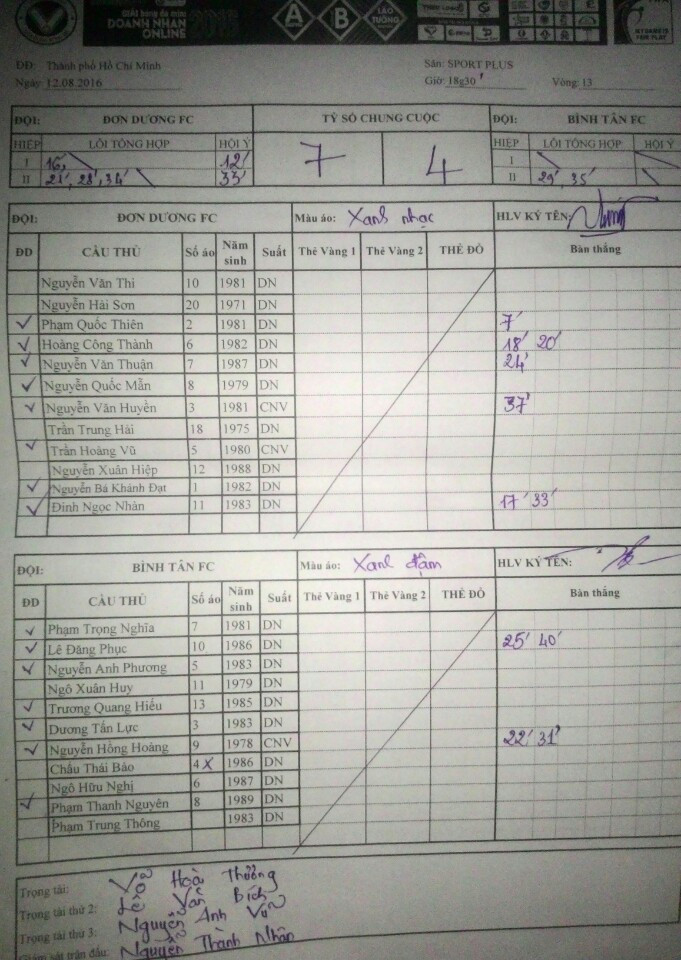 GIẢI bóng đá mini
DOANH NHÂN
ONLINE
A B LÃO TƯỚNG
FAIR PLAY
ĐĐ: Thành phố Hồ Chí Minh Sân: SPORT PLUS
Ngày: 12.08.2016 Giờ: 18g30' Vòng: 13
ĐỘI: ĐƠN DƯƠNG FC TỶ SỐ CHUNG CUỘC ĐỘI: BÌNH TÂN FC
HIỆP LỖI TỔNG HỢP HỘI Ý 7 4 HIỆP LỖI TỔNG HỢP HỘI Ý
I 16' 12' I
II 21', 28', 34' 33' II 29', 35'
ĐỘI: ĐƠN DƯƠNG FC Màu áo: Xanh nhạc HLV KÝ TÊN:
ĐD CẦU THỦ Số áo Năm sinh Suất Thẻ Vàng 1 Thẻ Vàng 2 THẺ ĐỎ Bàn thắng
Nguyễn Văn Thi 10 1981 DN
Nguyễn Hải Sơn 20 1971 DN
✓ Phạm Quốc Thiên 2 1981 DN 7'
✓ Hoàng Công Thành 6 1982 DN 18' 20'
✓ Nguyễn Văn Thuận 7 1987 DN 24'
✓ Nguyễn Quốc Mẫn 8 1979 DN
✓ Nguyễn Văn Huyền 3 1981 CNV 37'
Trần Trung Hải 18 1975 DN
✓ Trần Hoàng Vũ 5 1980 CNV
Nguyễn Xuân Hiệp 12 1988 DN
✓ Nguyễn Bá Khánh Đạt 1 1982 DN
✓ Đinh Ngọc Nhàn 11 1983 DN 17' 33'
ĐỘI: BÌNH TÂN FC Màu áo: Xanh đậm HLV KÝ TÊN:
ĐD CẦU THỦ Số áo Năm sinh Suất Thẻ Vàng 1 Thẻ Vàng 2 THẺ ĐỎ Bàn thắng
✓ Phạm Trọng Nghĩa 7 1981 DN
✓ Lê Đăng Phục 10 1986 DN 25' 40'
✓ Nguyễn Anh Phương 5 1983 DN
Ngô Xuân Huy 11 1979 DN
✓ Trương Quang Hiếu 13 1985 DN
✓ Dương Tấn Lực 3 1983 DN
✓ Nguyễn Hồng Hoàng 9 1978 CNV 22' 31'
Châu Thái Bảo 4 X 1986 DN
Ngô Hữu Nghị 6 1987 DN
✓ Phạm Thanh Nguyên 8 1989 DN
Phạm Trung Thông 1983 DN
Trọng tài: Võ Hoài Thương
Trọng tài thứ 2: Lê Văn Bích
Trọng tài thứ 3: Nguyễn Anh Vũ
Giám sát trận đấu: Nguyễn Thành Nhân